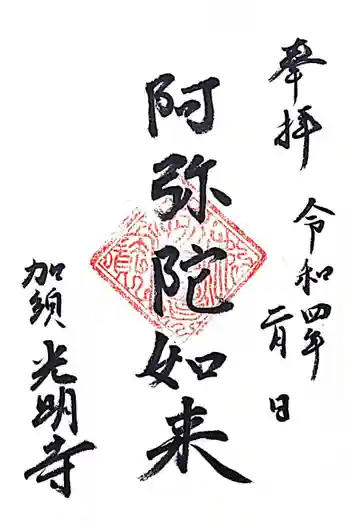 奉拝
令和四年
二月 日
阿弥陀如来
加須
光明寺